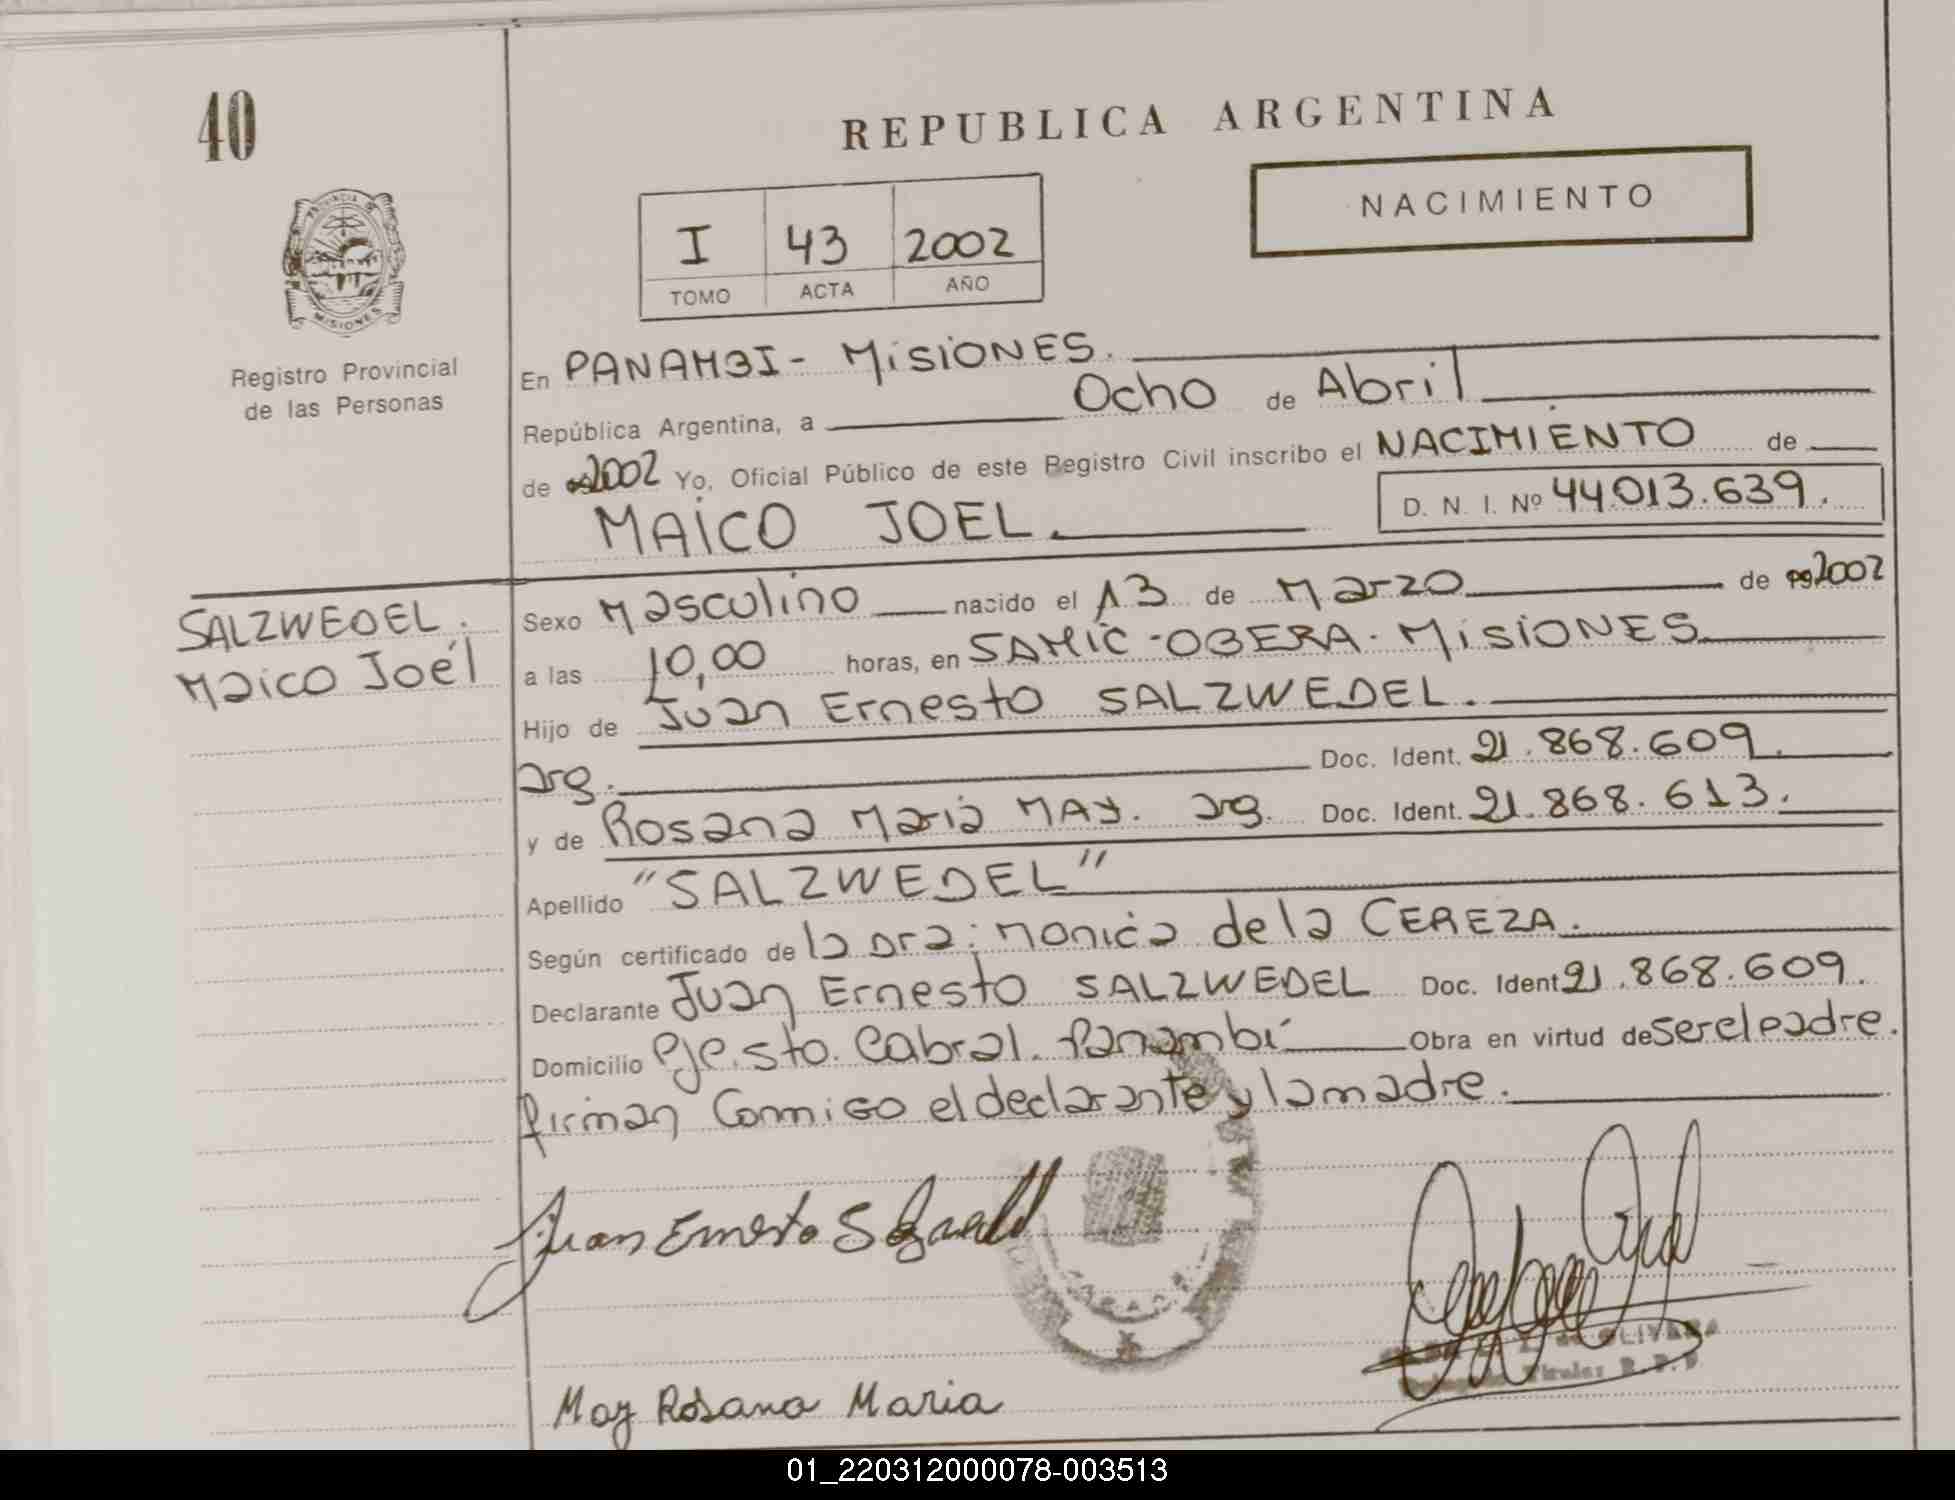 40
REPUBLICA ARGENTINA
NACIMIENTO
I 43 2002
TOMO ACTA AÑO
PROVINCIA DE
MISIONES
Registro Provincial
de las Personas
En PANAMBI - MISIONES.
República Argentina, a Ocho de Abril
de 2002 Yo, Oficial Público de este Registro Civil inscribo el NACIMIENTO de
MAICO JOEL.
D. N. I. Nº 44.013.639.
SALZWEDEL.
Maico Joél
Sexo Masculino nacido el 13 de Marzo de 2002
a las 10,00 horas, en SAMIC - OBERA - MISIONES
Hijo de Juan Ernesto SALZWEDEL.
arg. Doc. Ident. 21.868.609.
y de Rosana Maria MAY. arg. Doc. Ident. 21.868.613.
Apellido "SALZWEDEL"
Según certificado de la Dra: Monica de la CEREZA.
Declarante Juan Ernesto SALZWEDEL Doc. Ident 21.868.609.
Domicilio Pje. sto. Cabral. Panambí Obra en virtud de ser el padre.
firman Conmigo el declarante y la madre.
Juan Ernesto
de OLIVARA
Titular R. P. P
May Rosana Maria
01_220312000078-003513